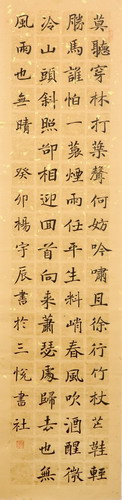 莫聽穿林打葉聲何妨吟嘯且徐行竹杖芒鞋輕
勝馬誰怕一蓑煙雨任平生料峭春風吹酒醒微
冷山頭斜照卻相迎回首向來蕭瑟處歸去也無
風雨也無晴 癸卯楊宇辰書於三悅書社